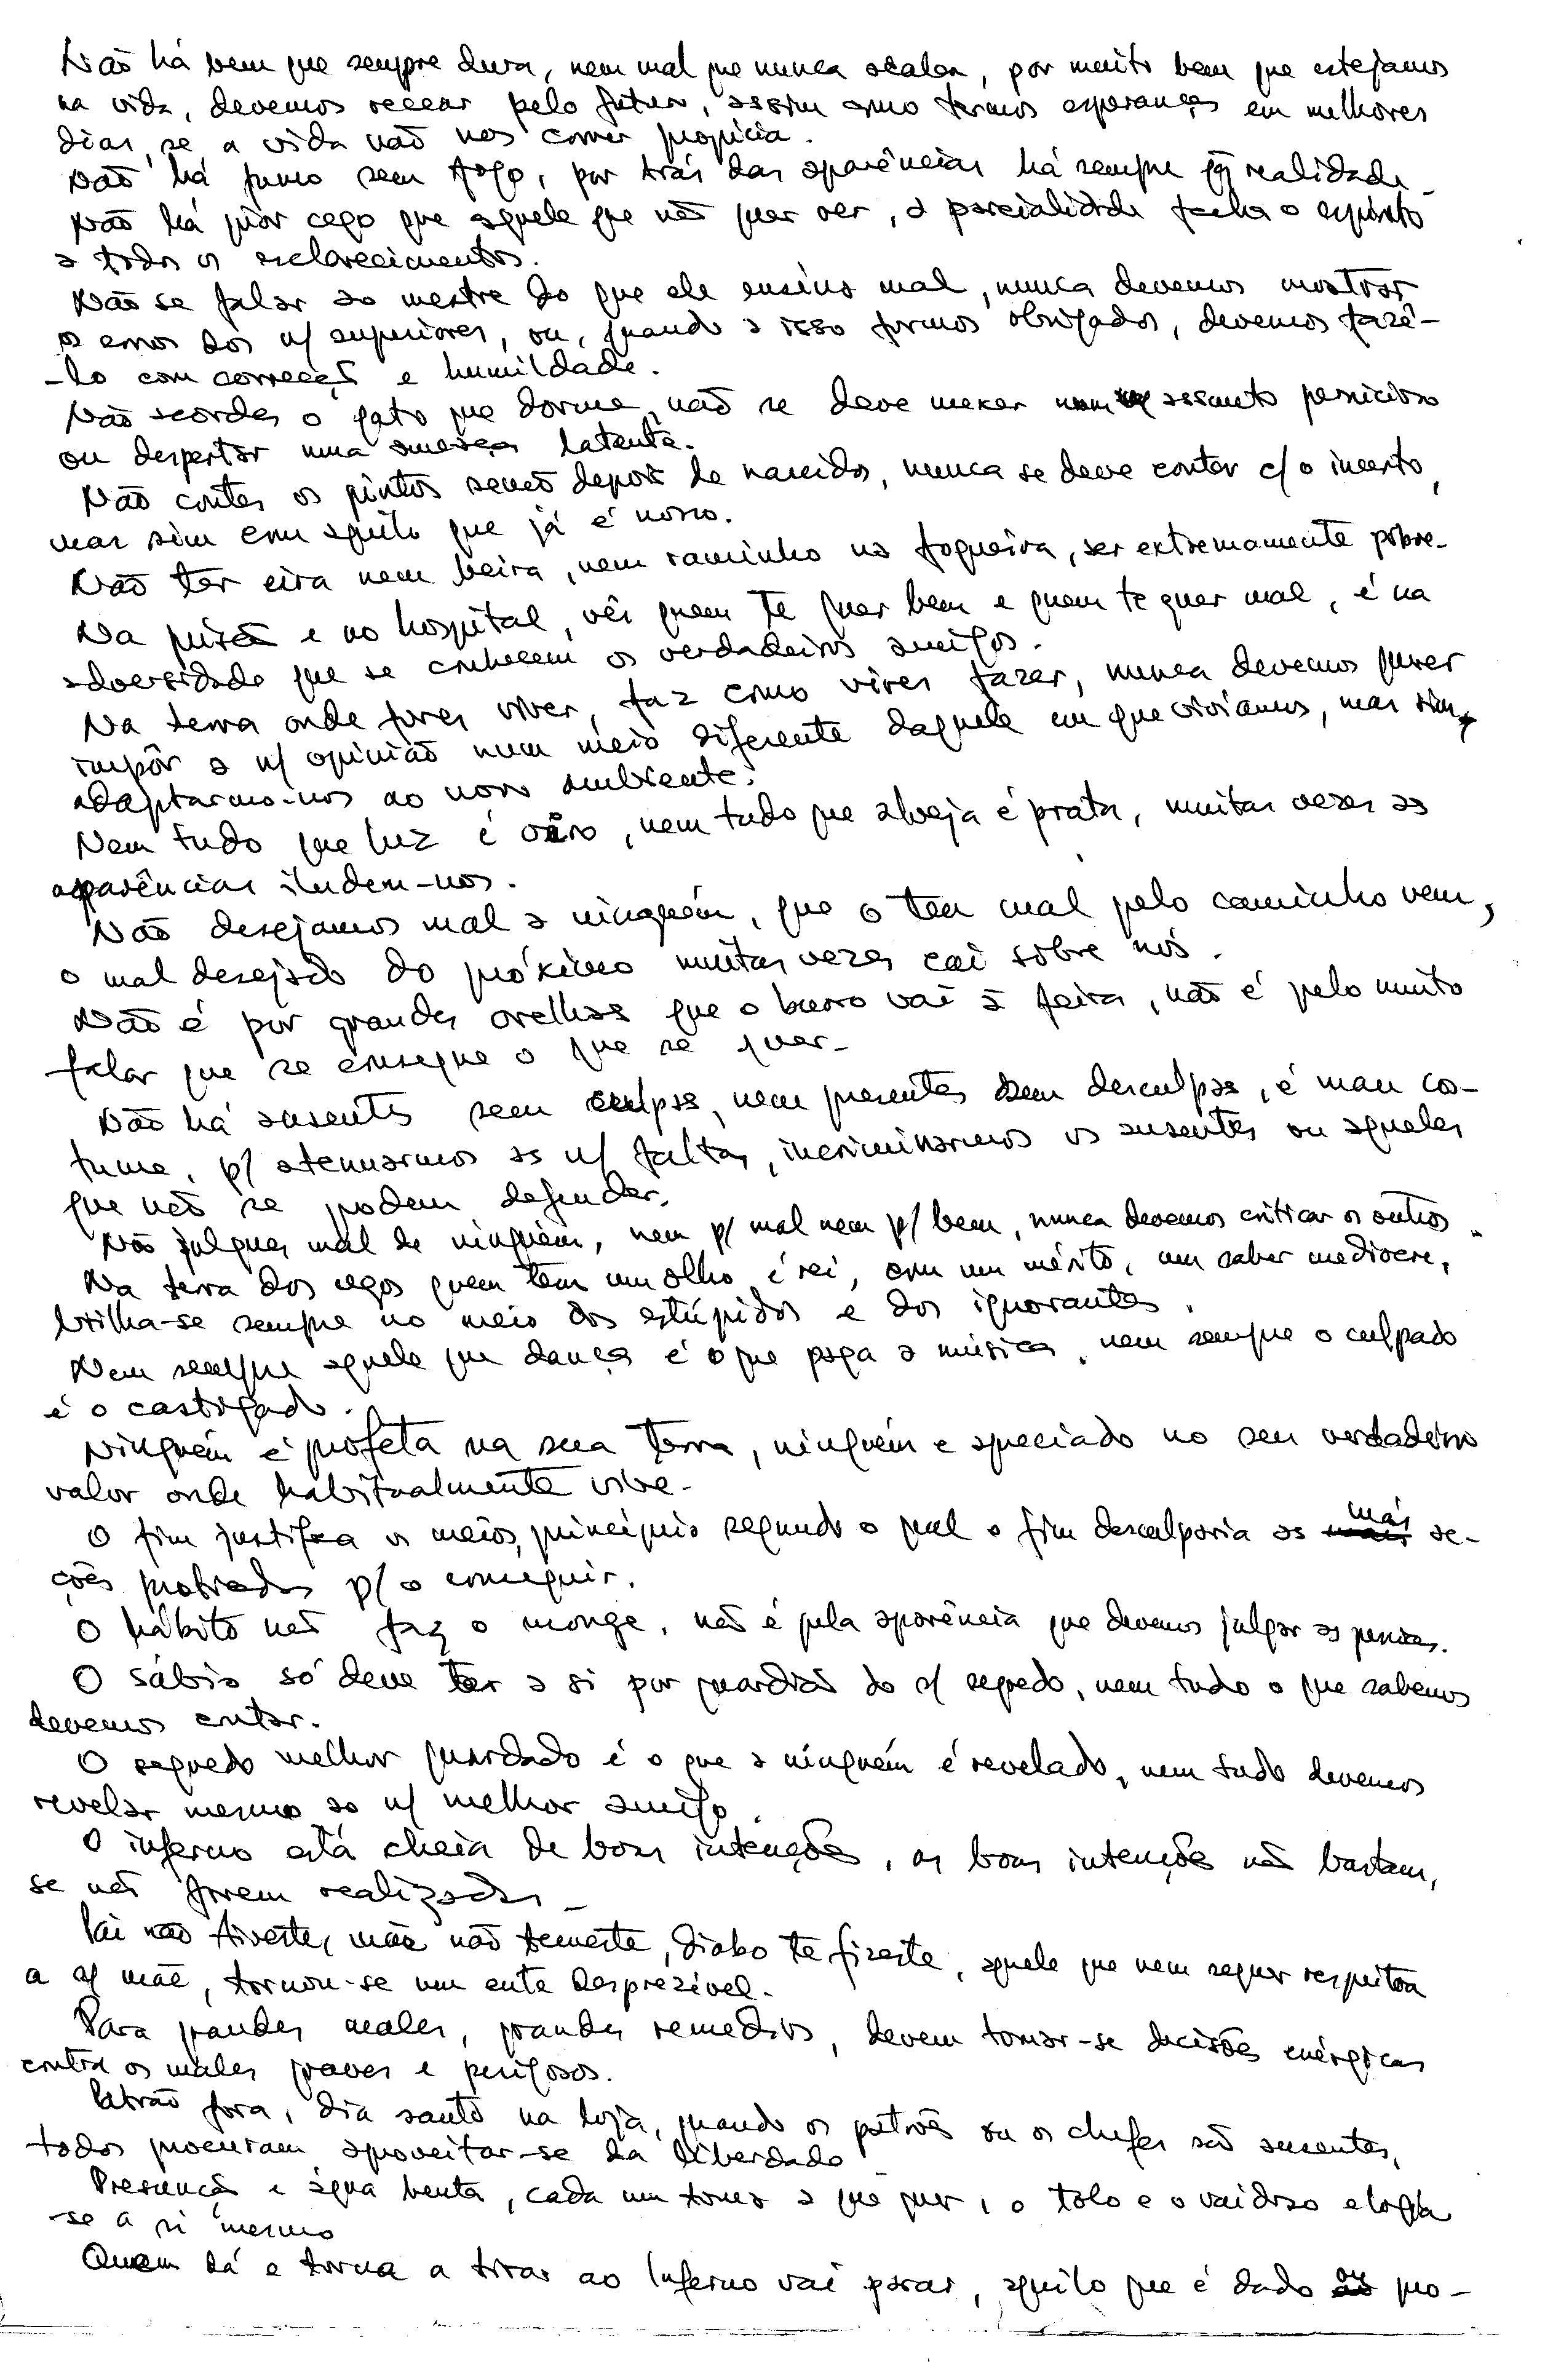 Não há bem que sempre dura, nem mal que nunca acaba, por muito bem que estejamos
na vida, devemos recear pelo futuro, assim como termos esperanças em melhores
dias, se a vida não nos correr propícia.
Não há fumo sem fogo, por trás das aparências há sempre realidade.
Não há pior cego que aquele que não quer ver, a parcialidade fecha o espírito
a todos os esclarecimentos.
Não se falar ao mestre do que ele ensina mal, nunca devemos mostrar
os erros dos n/ superiores, ou, quando a isso formos obrigados, devemos fazê-
-lo com correcção e humildade.
Não acordes o gato que dorme, não se deve mexer num assunto pernicioso
ou despertar uma ameaça latente.
Não contes os pintos senão depois de nascidos, nunca se deve contar c/ o incerto,
mas sim com aquilo que já é nosso.
Não ter eira nem beira, nem raminho na fogueira, ser extremamente pobre.
Na prisão e no hospital, vês quem te quer bem e quem te quer mal, é na
adversidade que se conhecem os verdadeiros amigos.
Na terra onde fores viver, faz como vires fazer, nunca devemos querer
impôr a n/ opinião num meio diferente daquele em que vivíamos, mas sim,
adaptarmo-nos ao novo ambiente.
Nem tudo que luz é oiro, nem tudo que alveja é prata, muitas vezes as
aparências iludem-nos.
Não desejamos mal a ninguém, que o teu mal pelo caminho vem,
o mal desejado do próximo muitas vezes cai sobre nós.
Não é por grandes orelhas que o burro vai à feira, não é pelo muito
falar que se consegue o que se quer.
Não há ausentes sem culpas, nem presentes sem desculpas, é mau cos-
tume, p/ atenuarmos as n/ faltas, incriminarmos os ausentes ou aqueles
que não se podem defender.
Não julgues mal de ninguém, nem p/ mal nem p/ bem, nunca devemos criticar os outros.
Na terra dos cegos quem tem um olho é rei, com um mérito, um saber medíocre,
brilha-se sempre no meio dos estúpidos e dos ignorantes.
Nem sempre aquele que dança é o que paga a música, nem sempre o culpado
é o castigado.
Ninguém é profeta na sua terra, ninguém é apreciado no seu verdadeiro
valor onde habitualmente vive.
O fim justifica os meios, princípio segundo o qual o fim desculparia as más ac-
ções praticadas p/ o conseguir.
O hábito não faz o monge, não é pela aparência que devemos julgar as pessoas.
O sábio só deve ter a si por guardião do s/ segredo, nem tudo o que sabemos
devemos contar.
O segredo melhor guardado é o que a ninguém é revelado, nem tudo devemos
revelar mesmo ao n/ melhor amigo.
O inferno está cheia de boas intenções, as boas intenções não bastam,
se não forem realizadas.
Pai não tiveste, mãe não temeste, diabo te fizeste, aquele que nem sequer respeitou
a s/ mãe, tornou-se um ente desprezível.
Para grandes males, grandes remedios, devem tomar-se decisões enérgicas
contra os males graves e perigosos.
Patrão fora, dia santo na loja, quando os patrões ou os chefes são ausentes,
todos procuram aproveitar-se da liberdade
Presunção e água benta, cada um toma a que quer, o tolo e o vaidoso elogia
-se a si mesmo
Quem dá e torna a tirar ao Inferno vai parar, aquilo que é dado ou pro-